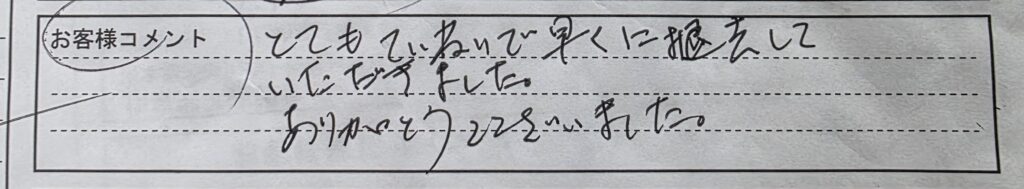 お客様コメント
とてもていねいで早くに撤去して
いただきました。
ありがとうございました。